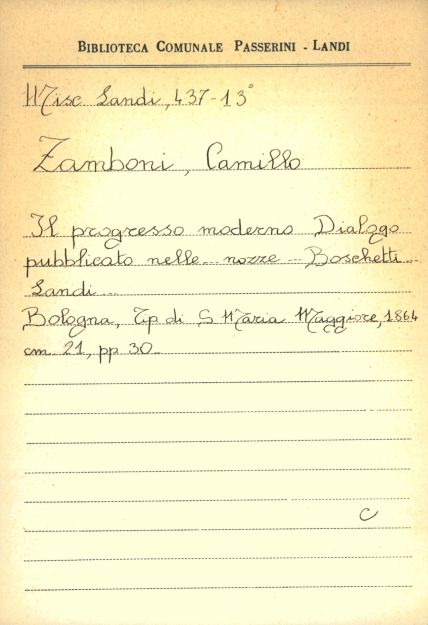 BIBLIOTECA COMUNALE PASSERINI - LANDI
Misc. Landi, 437-13°
Zamboni, Camillo
Il progresso moderno Dialogo
pubblicato nelle... nozze... Boschetti...
Landi...
Bologna, Tip di S Maria Maggiore, 1864
cm. 21, pp 30.
C